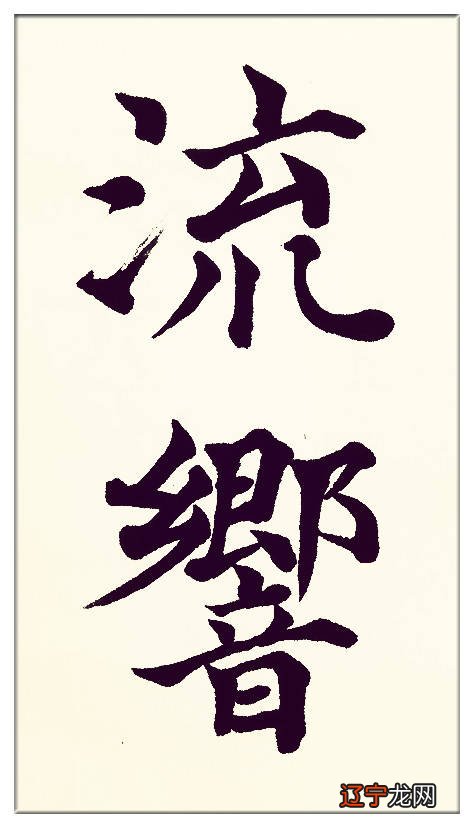 流
響
辽宁龙网